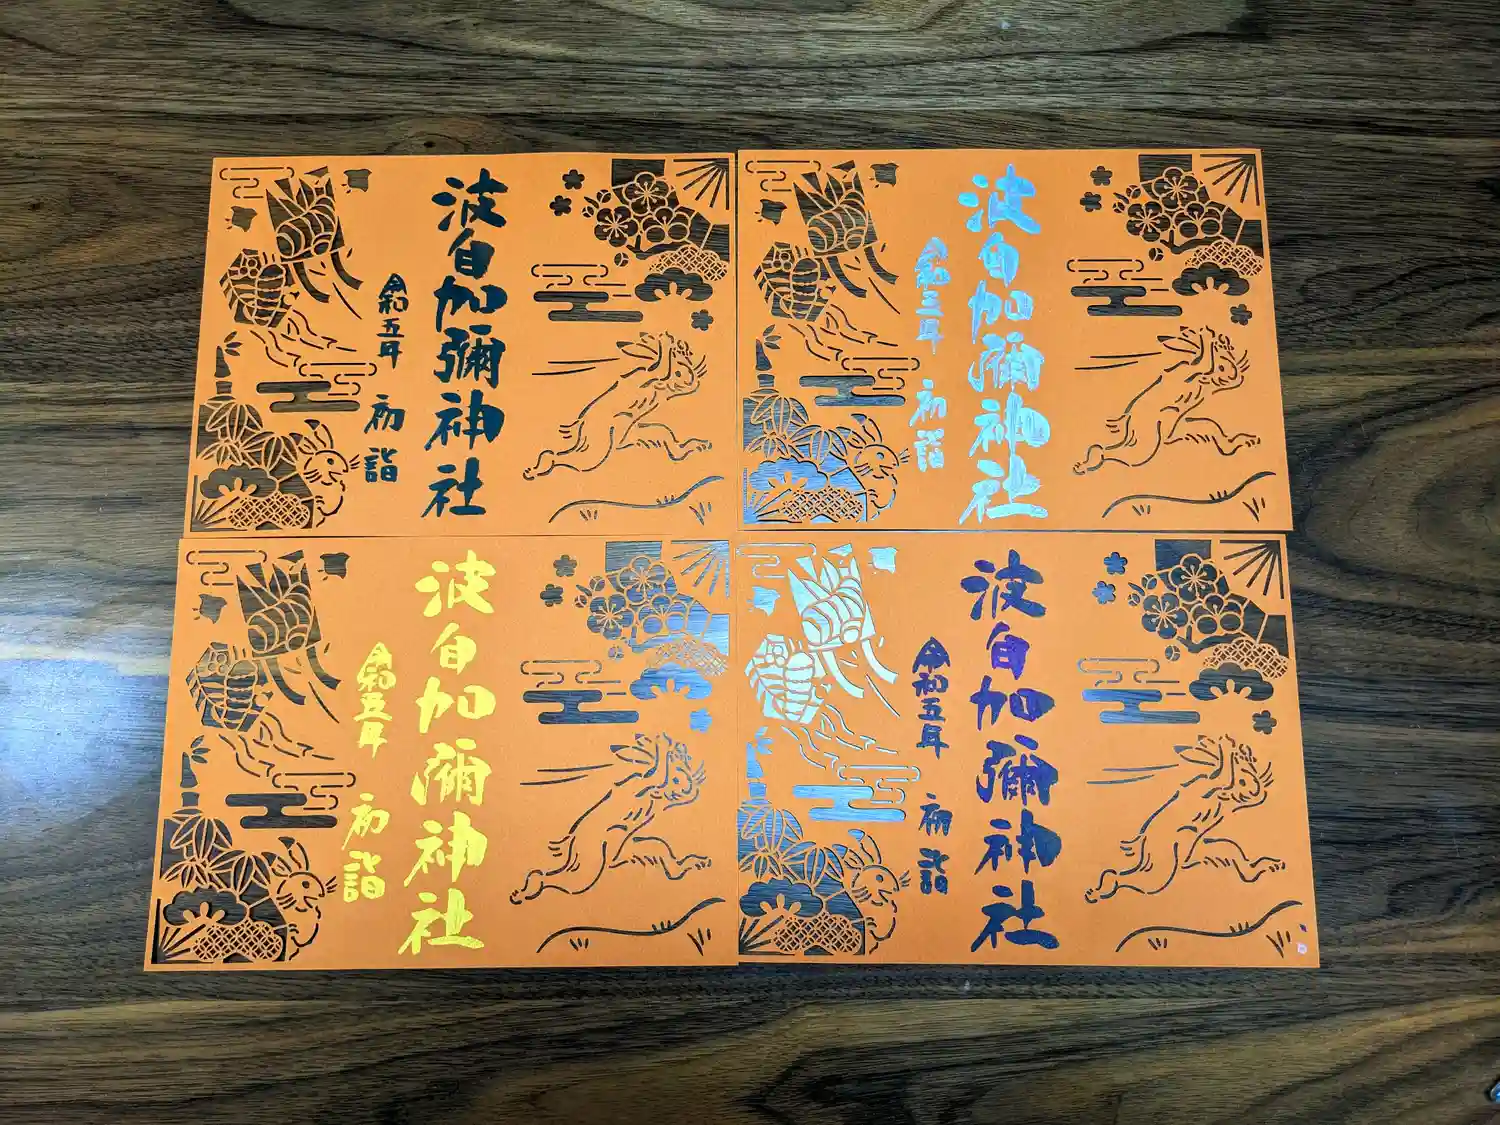 波自加彌神社
令和五年 初詣
波自加彌神社
令和三年 初詣
波自加彌神社
令和五年 初詣
波自加彌神社
令和五年 初詣